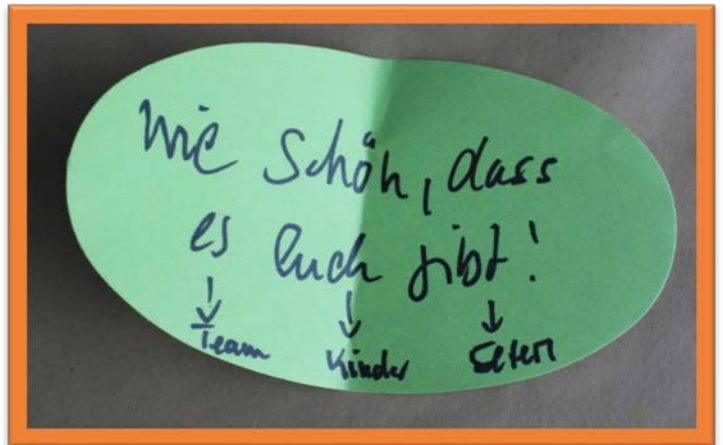 Wie schön, dass
es euch gibt!
↓ ↓ ↓
Team Kinder Eltern